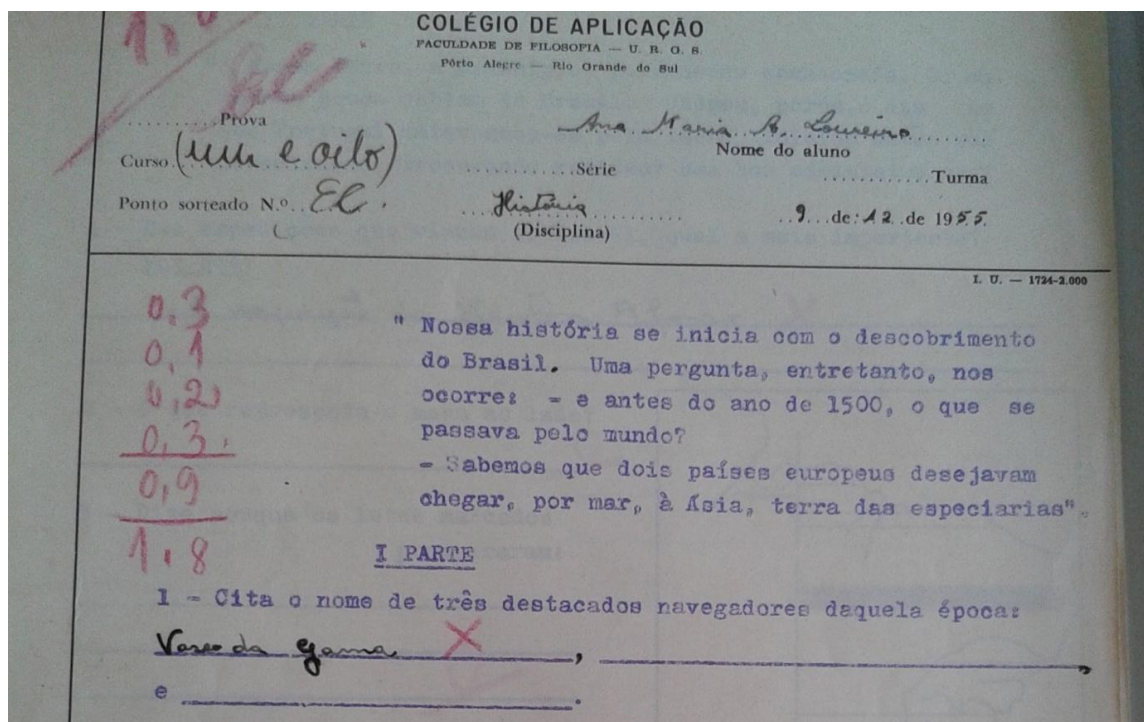 COLÉGIO DE APLICAÇÃO
FACULDADE DE FILOSOFIA — U. R. G. S.
Pôrto Alegre — Rio Grande do Sul
Prova
Ana Maria B. Loureiro
Nome do aluno
Curso (um e oito)
Série
Turma
Ponto sorteado N.º
História
(Disciplina)
9 de: 12 de 1955.
I. U. — 1724-2.000
0,3
0,1
0,2
0,3
0,9
1,8
" Nossa história se inicia com o descobrimento
do Brasil. Uma pergunta, entretanto, nos
ocorre: - e antes do ano de 1500, o que se
passava pelo mundo?
- Sabemos que dois países europeus desejavam
chegar, por mar, à Ásia, terra das especiarias".
I PARTE
1 - Cita o nome de três destacados navegadores daquela época:
Vasco da Gama X ,
e .